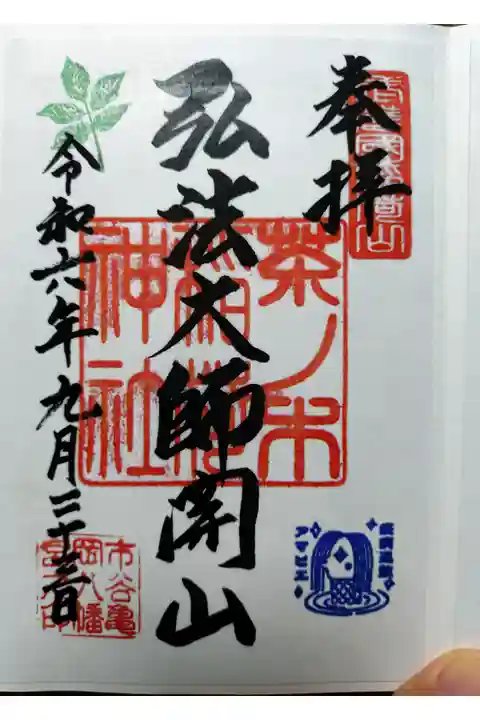 奉拝
弘法大師開山
茶ノ木
稲荷
神社
令和六年九月二十三日
市谷亀
岡八幡
アマビエ